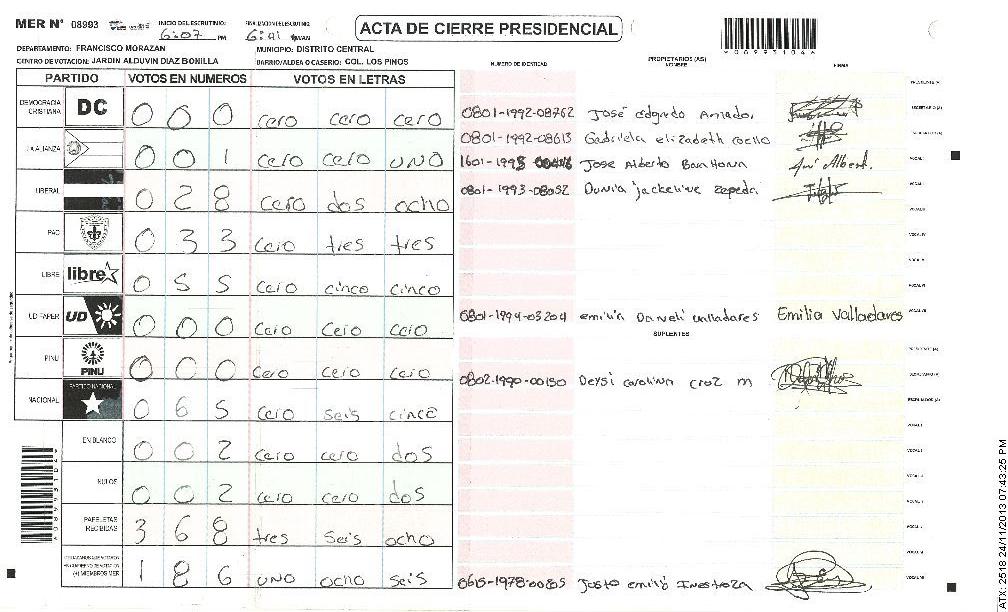 MER N° 08993
INICIO DEL ESCRUTINIO: 6:07 PM
FINALIZACION DEL ESCRUTINIO: 6:41
ACTA DE CIERRE PRESIDENCIAL
DEPARTAMENTO: FRANCISCO MORAZAN
MUNICIPIO: DISTRITO CENTRAL
CENTRO DE VOTACION: JARDIN ALDUVIN DIAZ BONILLA
BARRIO/ALDEA O CASERIO: COL. LOS PINOS
PARTIDO VOTOS EN NUMEROS VOTOS EN LETRAS
NUMERO DE IDENTIDAD
PROPIETARIOS (AS)
NOMBRE
FIRMA
DEMOCRACIA CRISTIANA DC 0 0 0 cero cero cero
LA ALIANZA 0 0 1 cero cero uno
LIBERAL 0 2 8 cero dos ocho
PAC 0 3 3 cero tres tres
LIBRE libre 0 5 5 cero cinco cinco
UD FAPER UD 0 0 0 cero cero cero
PINU PINU 0 0 0 cero cero cero
NACIONAL PARTIDO NACIONAL 0 6 5 cero seis cinco
EN BLANCO 0 0 2 cero cero dos
NULOS 0 0 2 cero cero dos
PAPELETAS RECIBIDAS 3 6 8 tres seis ocho
(+) MIEMBROS MER 1 8 6 uno ocho seis
0801-1992-08762 José edgardo Amador
0801-1992-08613 Gabriela elizabeth coello
Jose Alberto Barahona
0801-1993-08052 Dunia jackeline zepeda
0801-1994-03204 emilia Daneli valladares Emilia Valladares
SUPLENTES
0802-1990-00150 Deysi carolina cruz m
0615-1978-00805 Justo emilio Inestroza
ATX: 2518 24/11/2013 07:43:25 PM